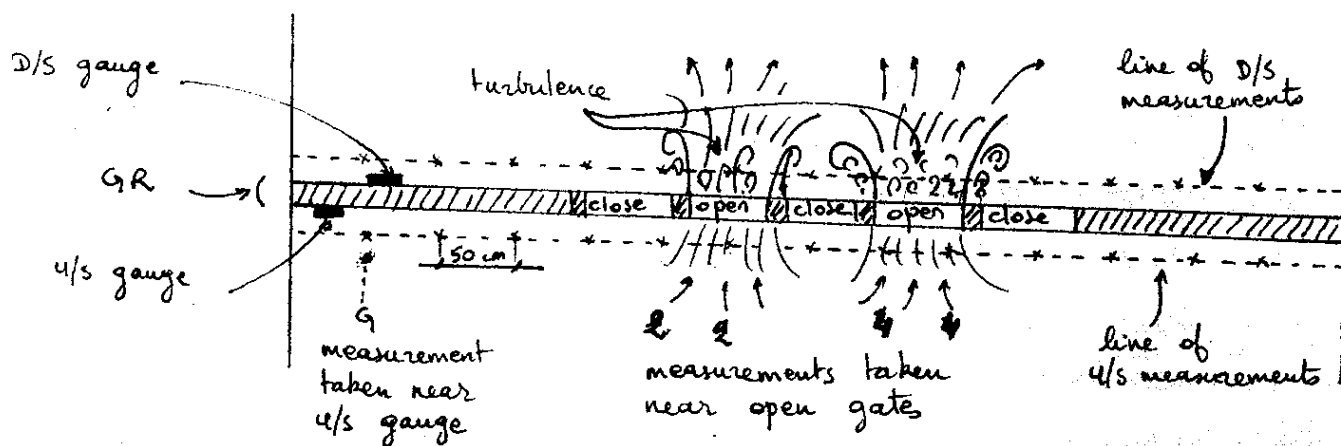 D/S gauge
turbulence
line of D/S
measurements
GR
close
open
close
open
close
50 cm
U/S gauge
G
measurement
taken near
U/S gauge
2 2 4 4
measurements taken
near open gates
line of
U/S measurements